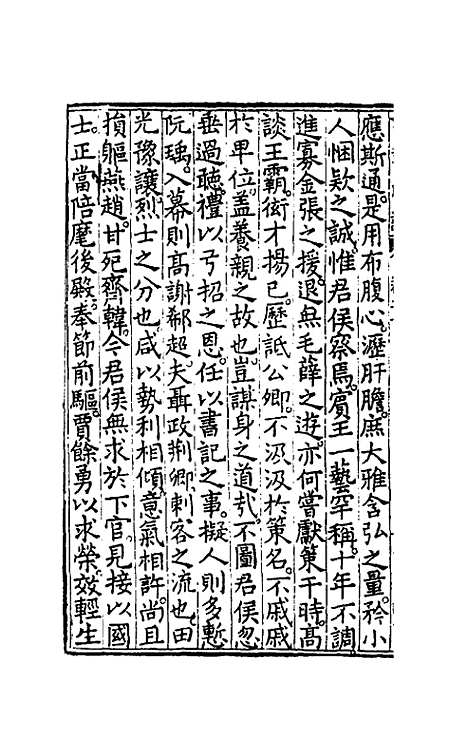 應斯通。是用布腹心。瀝肝膽。庶大雅含弘之量。矜小
人悃欵之誠。惟君侯察焉。賓王一藝罕稱。十年不調
進寡金張之援。退無毛薛之遊。亦何嘗獻策干時。高
談王霸。衒才揚已。歷詆公卿。不汲汲扵策名。不戚戚
扵卑位。盖養親之故也。豈謀身之道㢤。不圖君侯忽
垂過聽。禮以弓招之恩。任以書記之事。擬人則多慙
阮瑀。入幕則髙謝郗超。夫聶政荆卿。刺客之流也。田
光豫讓。烈士之分也。咸以勢利相傾。意氣相許。尚且
損軀燕趙。甘死齊韓。今君侯無求於下官。見接以國
士。正當陪麾後殿。奉節前驅。賈餘勇以求榮。效輕生